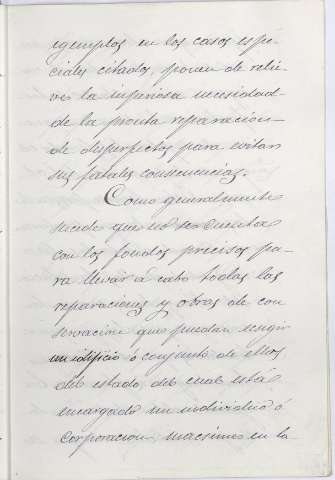 egemplos en los casos espe-
ciales citados, ponen de relie-
ve la imperiosa necesidad
de la pronta reparacion
de desperfectos para evitar
sus fatales consecuencias.
Como generalmente
sucede que no se cuenta
con los fondos precisos pa-
ra llevar á cabo todas las
reparaciones y obras de con
servacion que puedan exigir
un edificio ó conjunto de ellos
del estado, del cual está
encargado un individuo ó
corporacion, macsimo en la